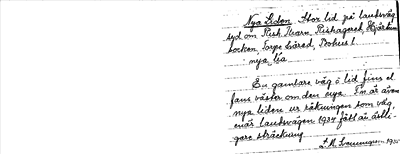 Nya Liden. Stor lid på landsväg
syd om Risk Kvarn, Rishagered, Hjärtum
socken, Torpe härad, Bohus l.
nya lia
En gamlare väg i lid fins el.
fans väster om den nya. Nu är även
nya liden ur räkningen som väg,
enär landsvägen 1934 fått en östli-
gare sträckning.
1935